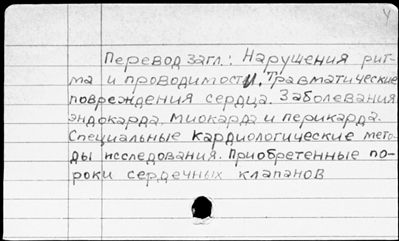 Ч
Перевод загл.: Нарушения рит-
ма и проводимости. Травматические
повреждения сердца. Заболевания
эндокарда, миокарда и перикарда.
Специальные кардиологические мето-
ды исследования. Приобретенные по-
роки сердечных клапанов